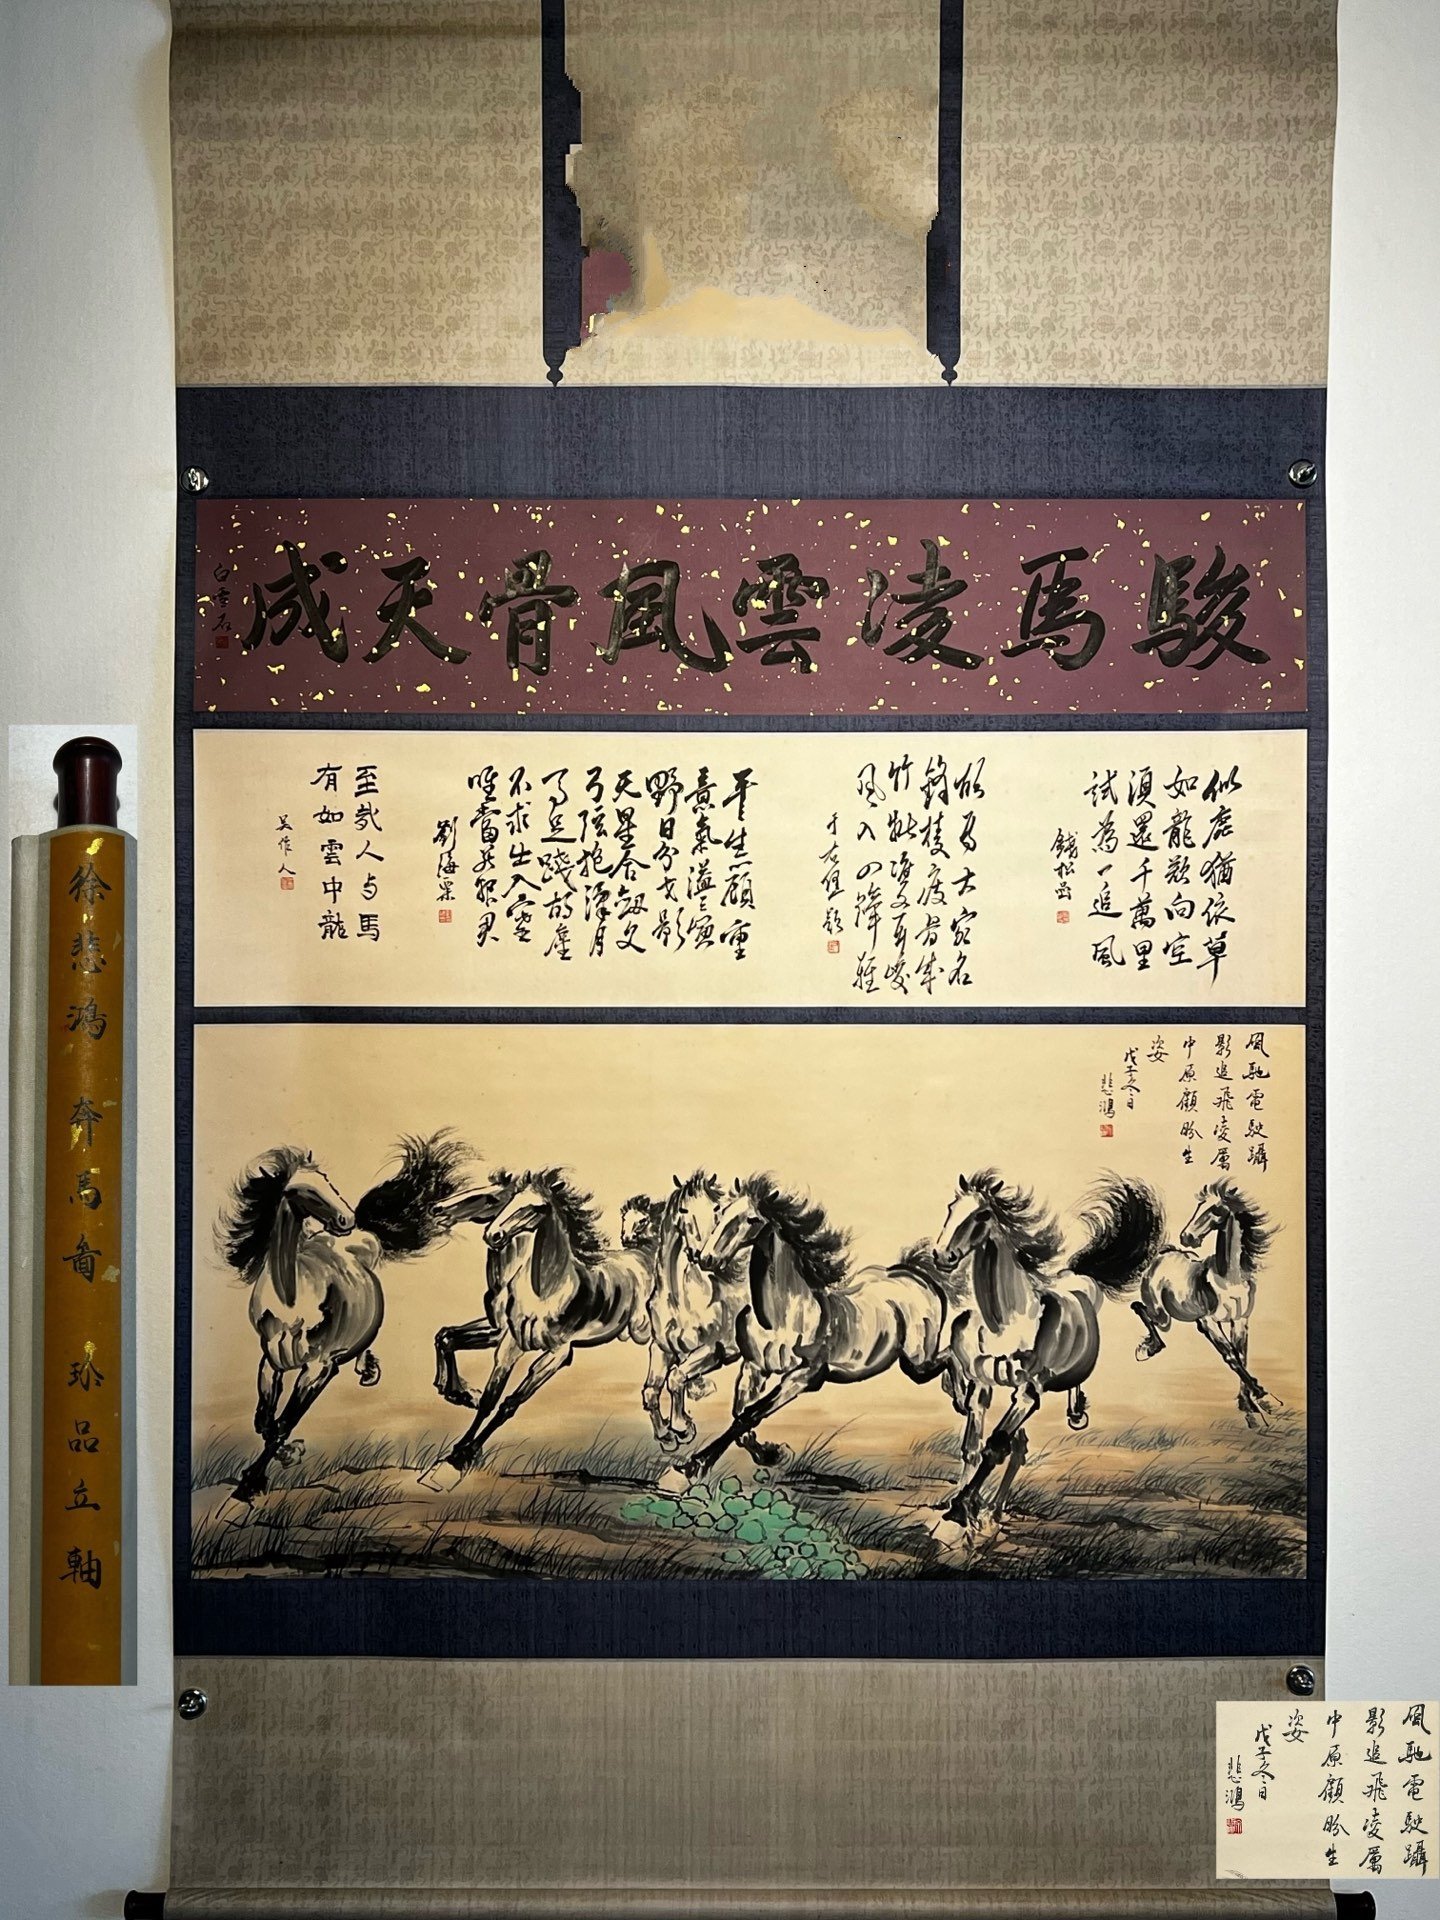 駿馬凌雲風骨天成
白雪石
似鹿猶依草
如龍欲向空
須還千萬里
試為一追風
錢松嵒
胡馬大宛名
鋒棱瘦骨成
竹批雙耳峻
風入四蹄輕
于右任題
平生懷顧重
意氣溢三軍
野日分戈影
天星合劍文
弓弦抱漢月
馬足踐胡塵
不求生入塞
唯當死報君
劉海粟
至哉人與馬
有如雲中龍
吴作人
風馳電駛躡
影追飛凌厲
中原顧盼生
姿
戊子冬日
悲鴻
徐悲鴻奔馬圖 珍品立軸
風馳電駛躡
影追飛凌厲
中原顧盼生
姿
戊子冬日
悲鴻